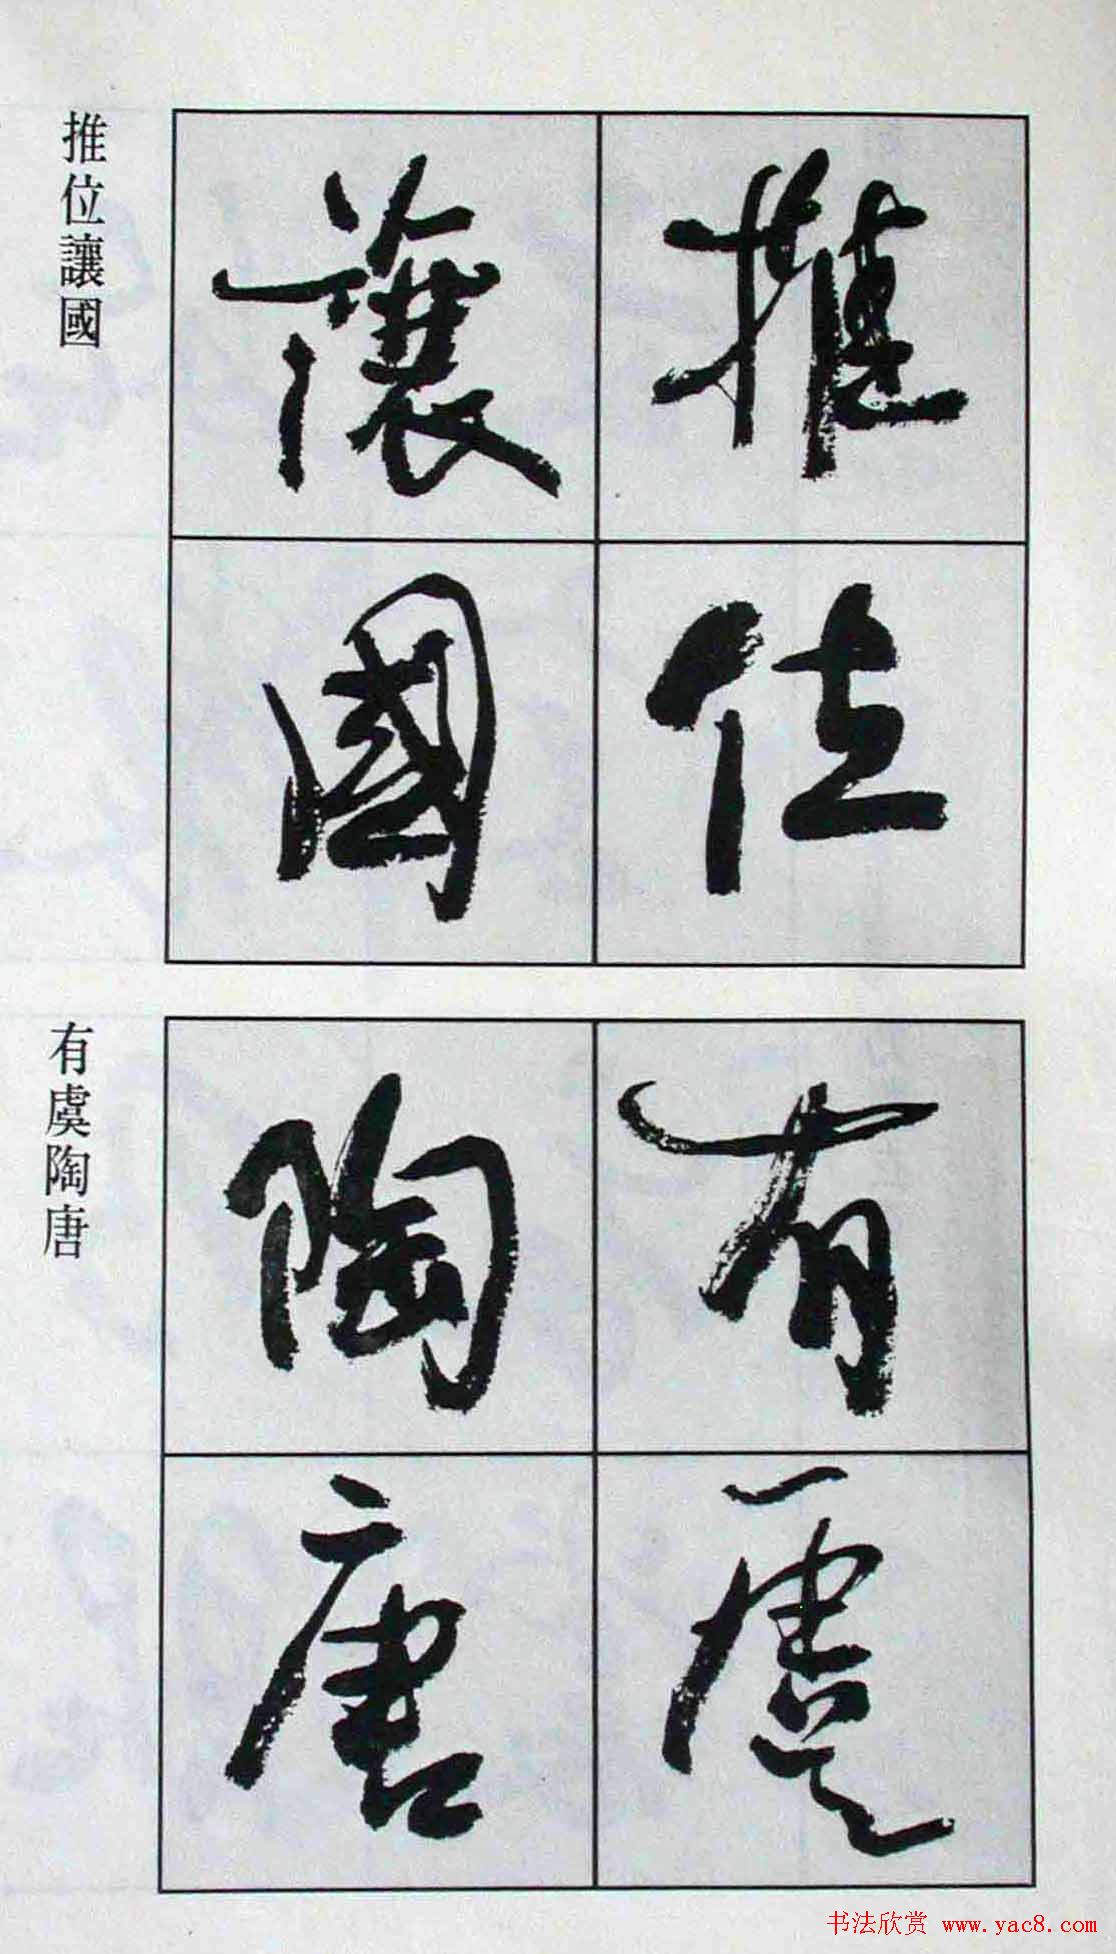 推位
讓國
推位讓國
有虞
陶唐
有虞陶唐
书法欣赏 www.yac8.com